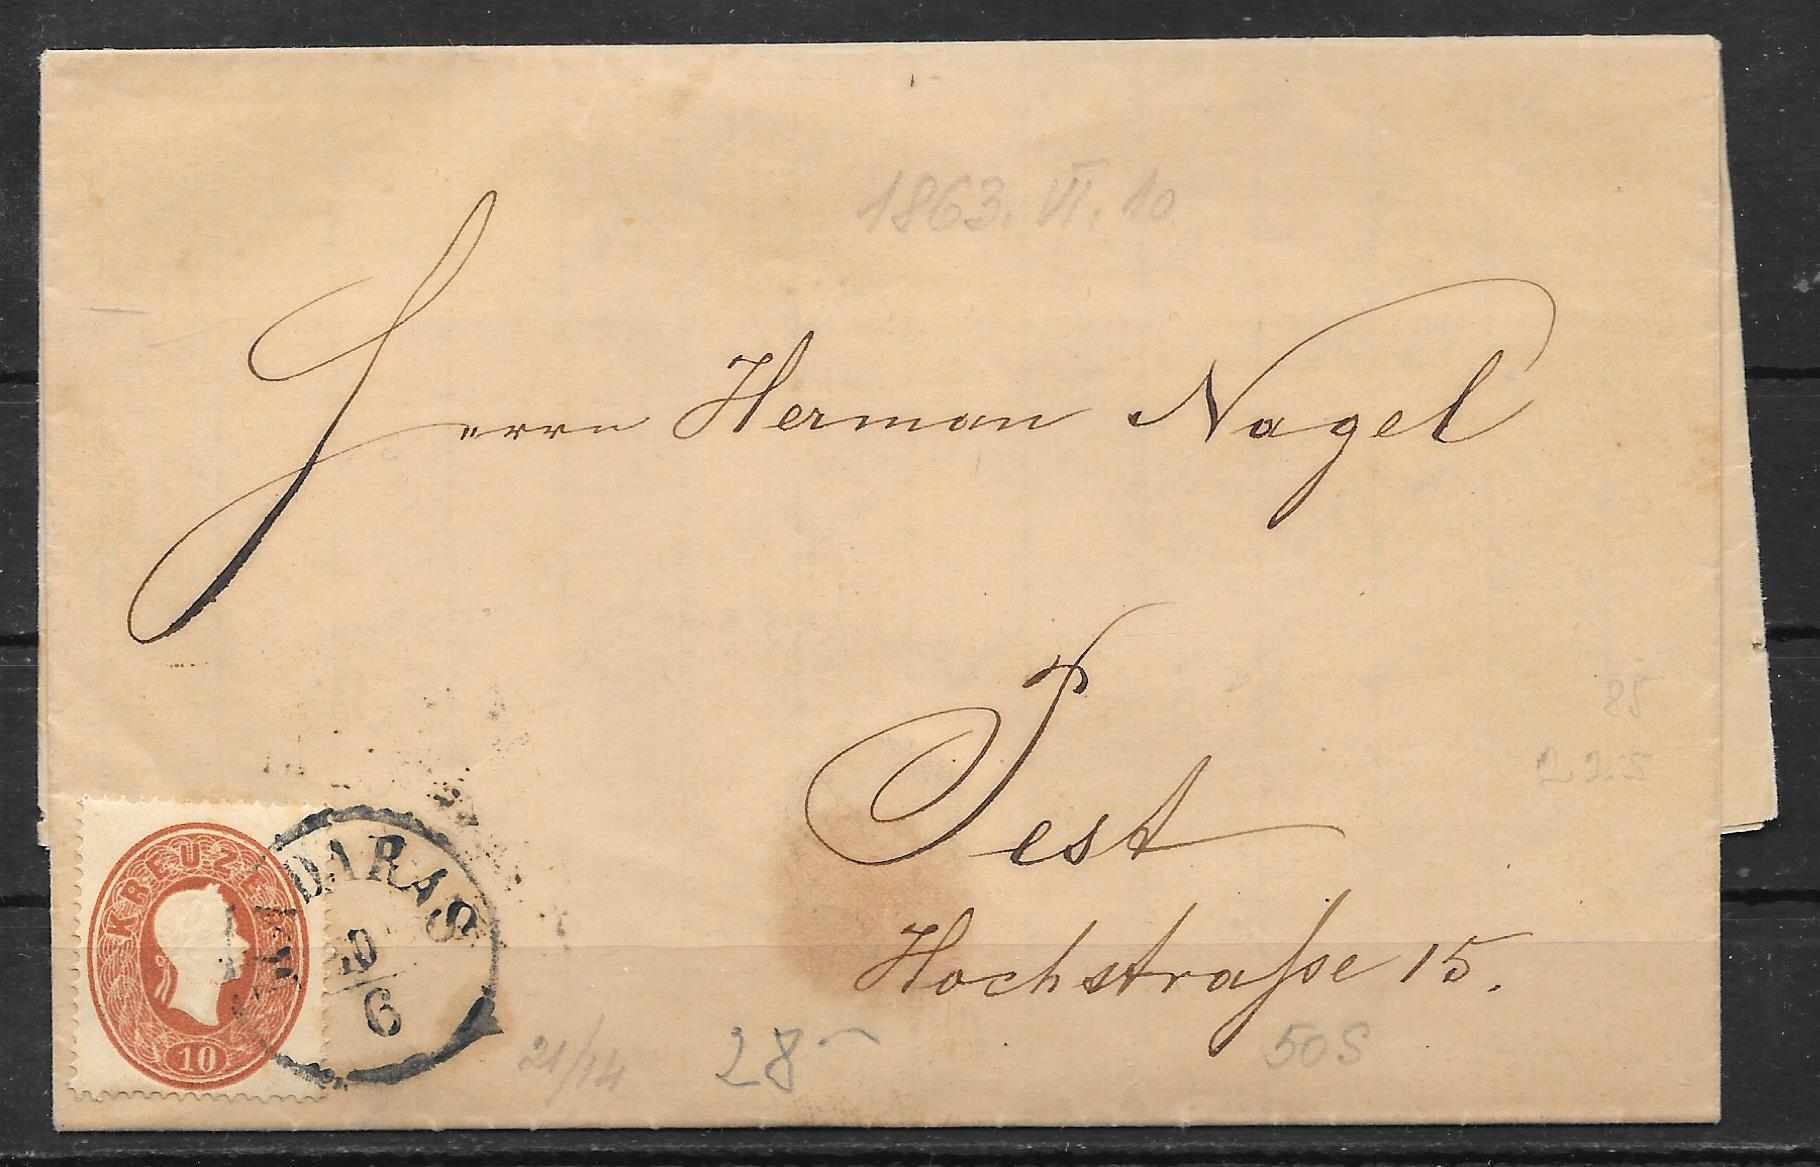 1863. VI. 10
Herrn Herman Nagel
Pest
Hochstraſse 15.
KREUZE
10
DARAS
10
6
21/14
28
50S